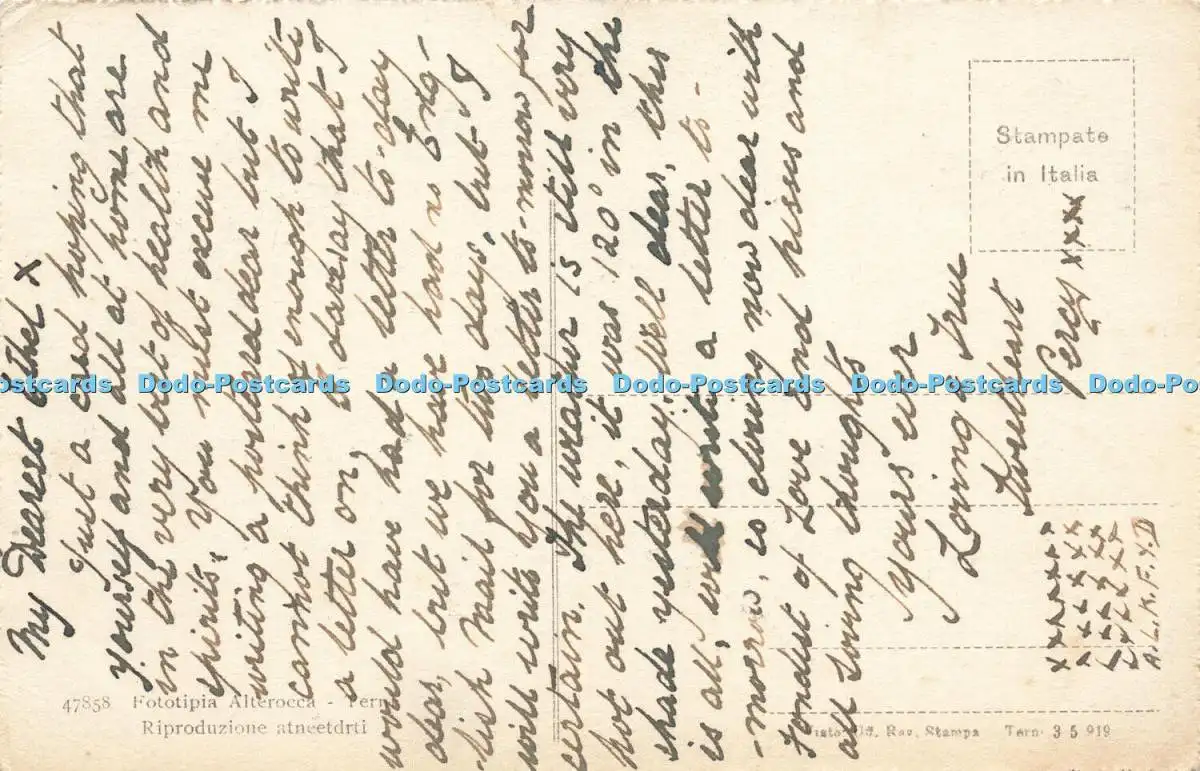 My Dearest Ethel x
Just a card hoping that
yourself and all at home are
in the very best of health and
spirits, You must excuse me
writing a postcard dear but I
cannot think of enough to write
a letter on, I daresay that I
would have had a letter to-day
dear, but we have had no Eng-
-lish mail for two days, but I
will write you a letter to-morrow for
certain. The weather is still very
hot out here, it was 120° in the
shade yesterday, well dear, this
is all, will write a letter to-
-morrow, so closing now dear with
fondest of Love and kisses and
all loving thoughts
Yours ever
Loving & True
Sweetheart
Percy xxxx
A.L.K.F.Y.D
Stampate
in Italia
47858 Fototipia Alterocca - Terni
Riproduzione atneetdrti
Visto Uff. Rev. Stampa Tern 3 5 919
Dodo-Postcards Dodo-Postcards Dodo-Postcards Dodo-Postcards Dodo-Postcards